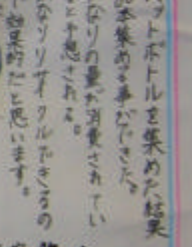 ットボトルを集めた結果
本集める事ができた。
なりの量が消費されてい
と予想される。
なリサイクルできるの
効果的だと思います。